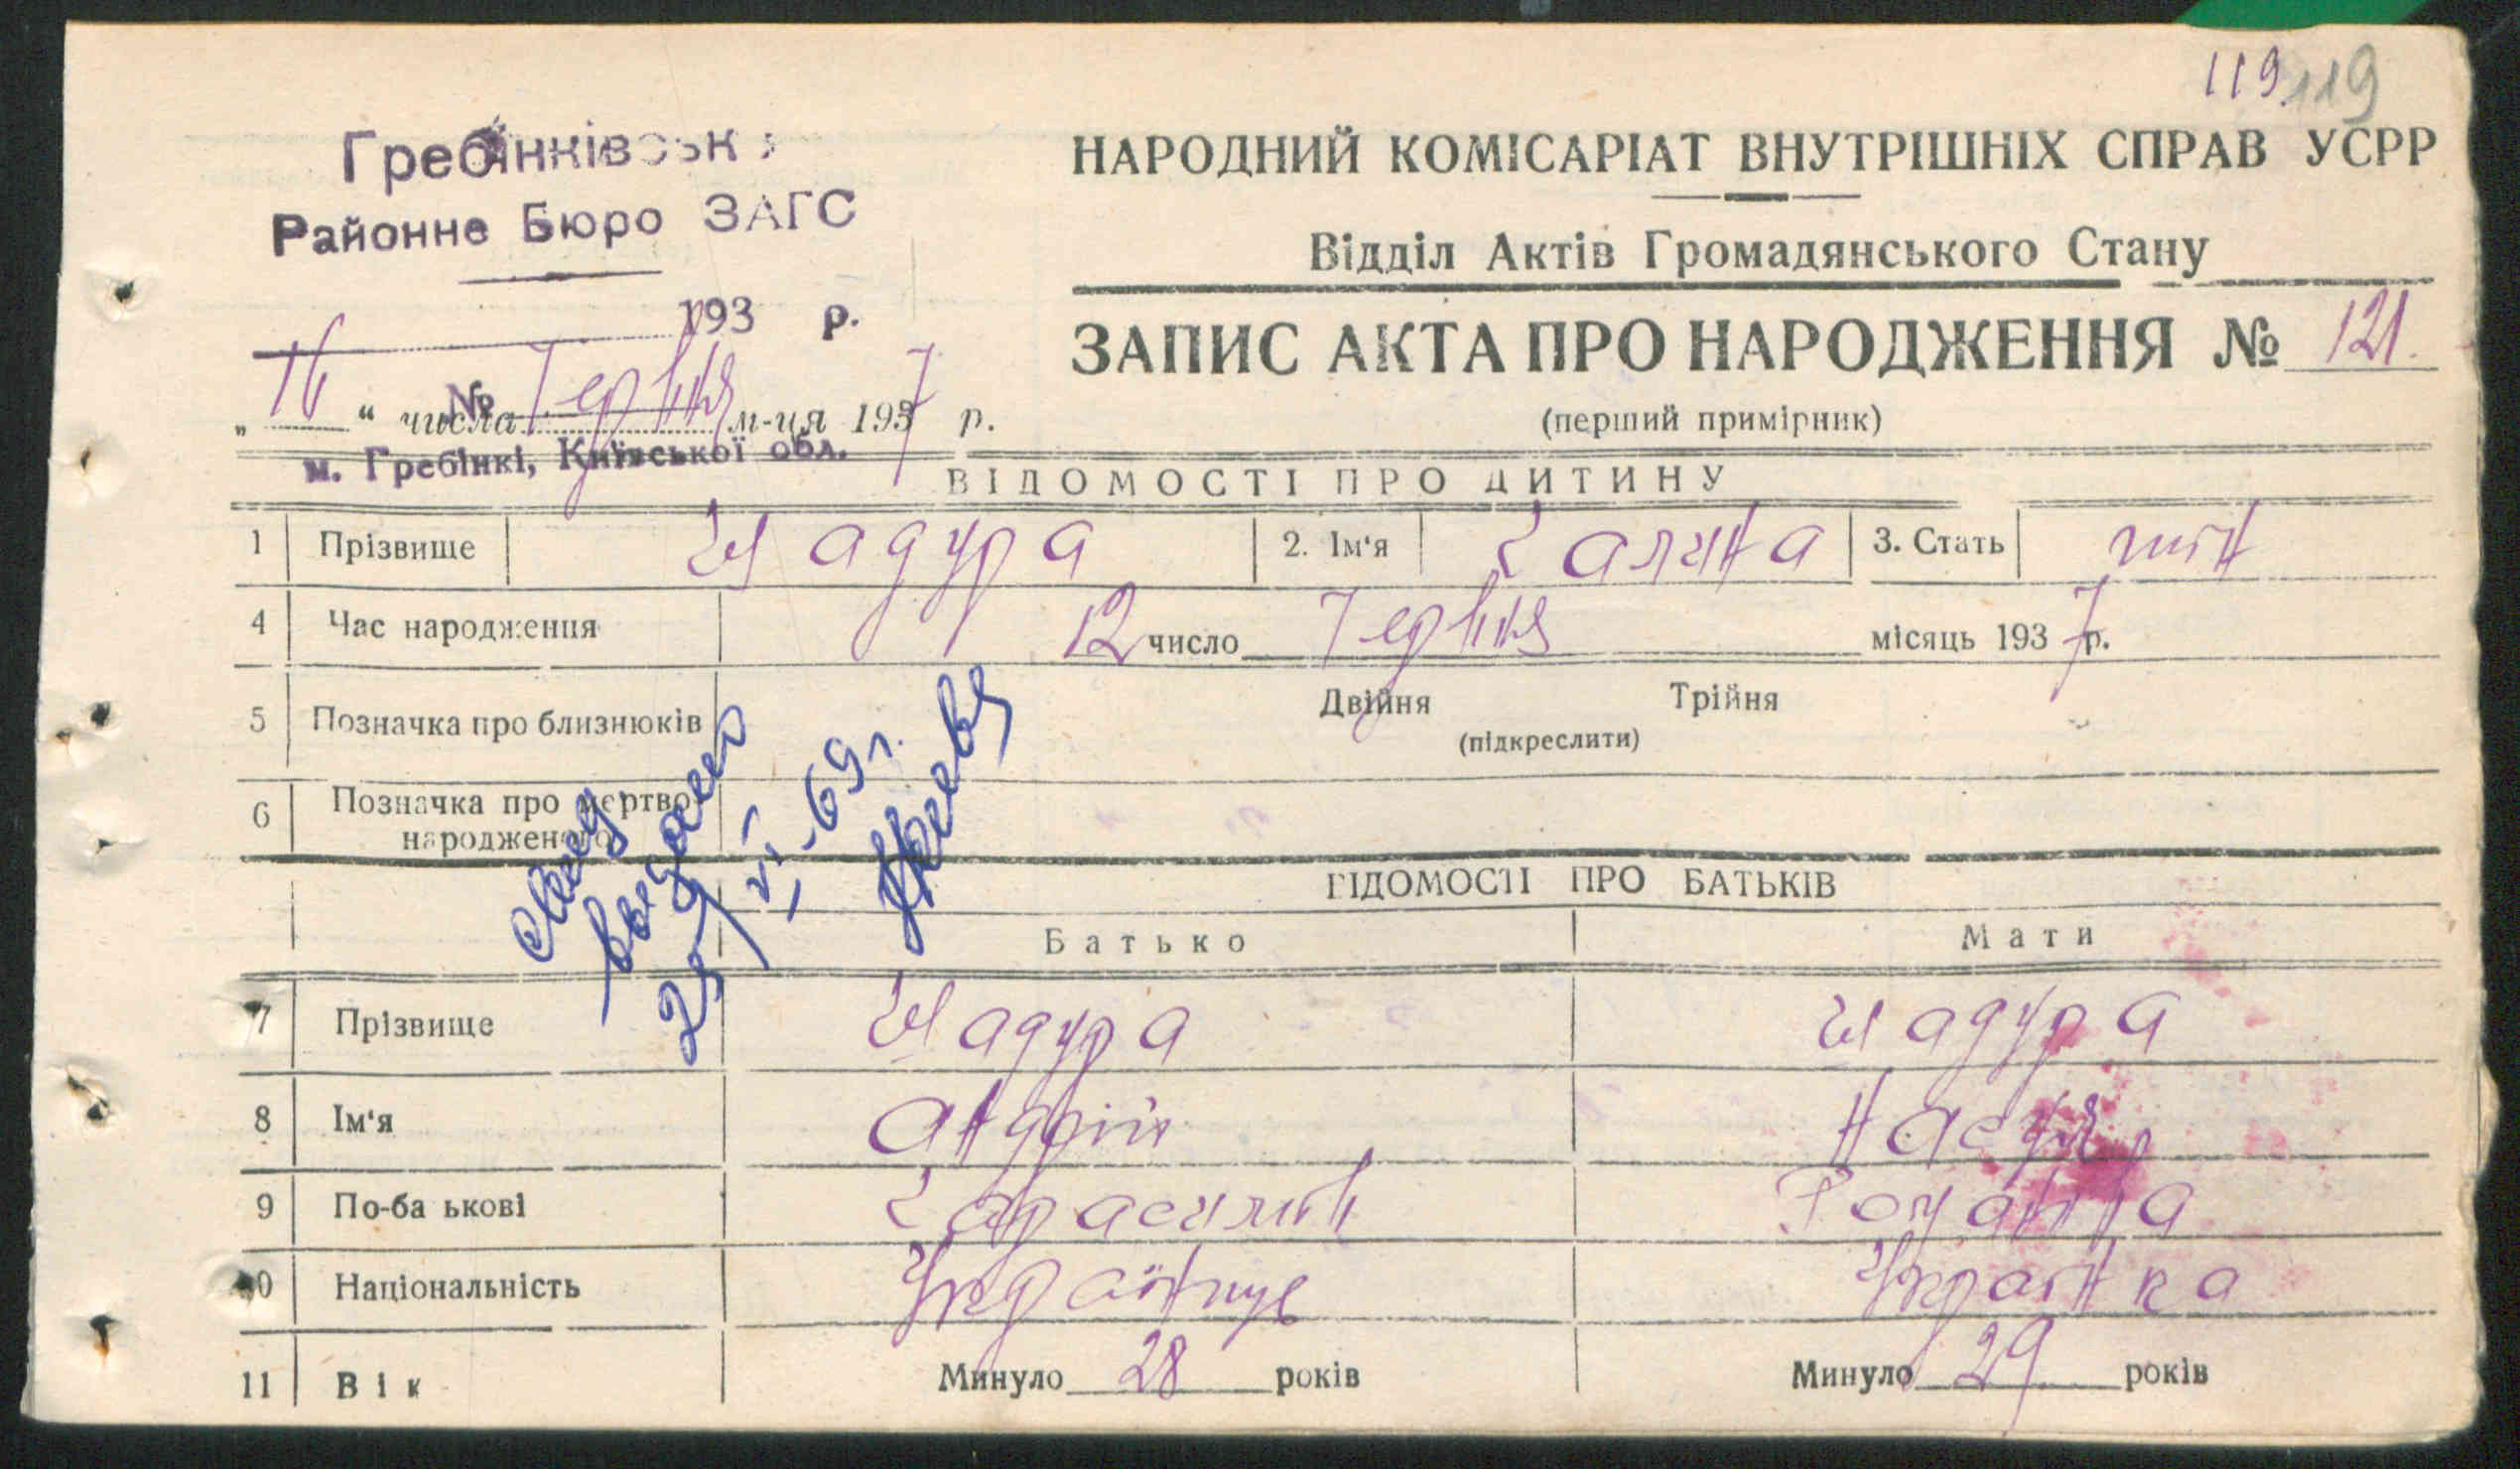 119. 119
Гребінківськ
Районне Бюро ЗАГС
193 р.
№
м. Гребінкі, Київської обл.
„16“ числа Червня м-ця 1937 р.
НАРОДНИЙ КОМІСАРІАТ ВНУТРІШНІХ СПРАВ УСРР
Відділ Актів Громадянського Стану
ЗАПИС АКТА ПРО НАРОДЖЕННЯ № 121.
(перший примірник)
ВІДОМОСТІ ПРО ДИТИНУ
1 Прізвище Шадура 2. Ім‘я Галина 3. Стать жін
4 Час народження 12 число Червня місяць 1937 р.
5 Позначка про близнюків Двійня Трійня
(підкреслити)
6 Позначка про мертво
народженого
выдано
25/VI-69 г.
ВІДОМОСТІ ПРО БАТЬКІВ
Батько Мати
7 Прізвище Шадура Шадура
8 Ім‘я Андрій Настя
9 По-ба ькові Герасимів Романівна
10 Національність Українець Українка
11 Вік Минуло 28 років Минуло 29 років